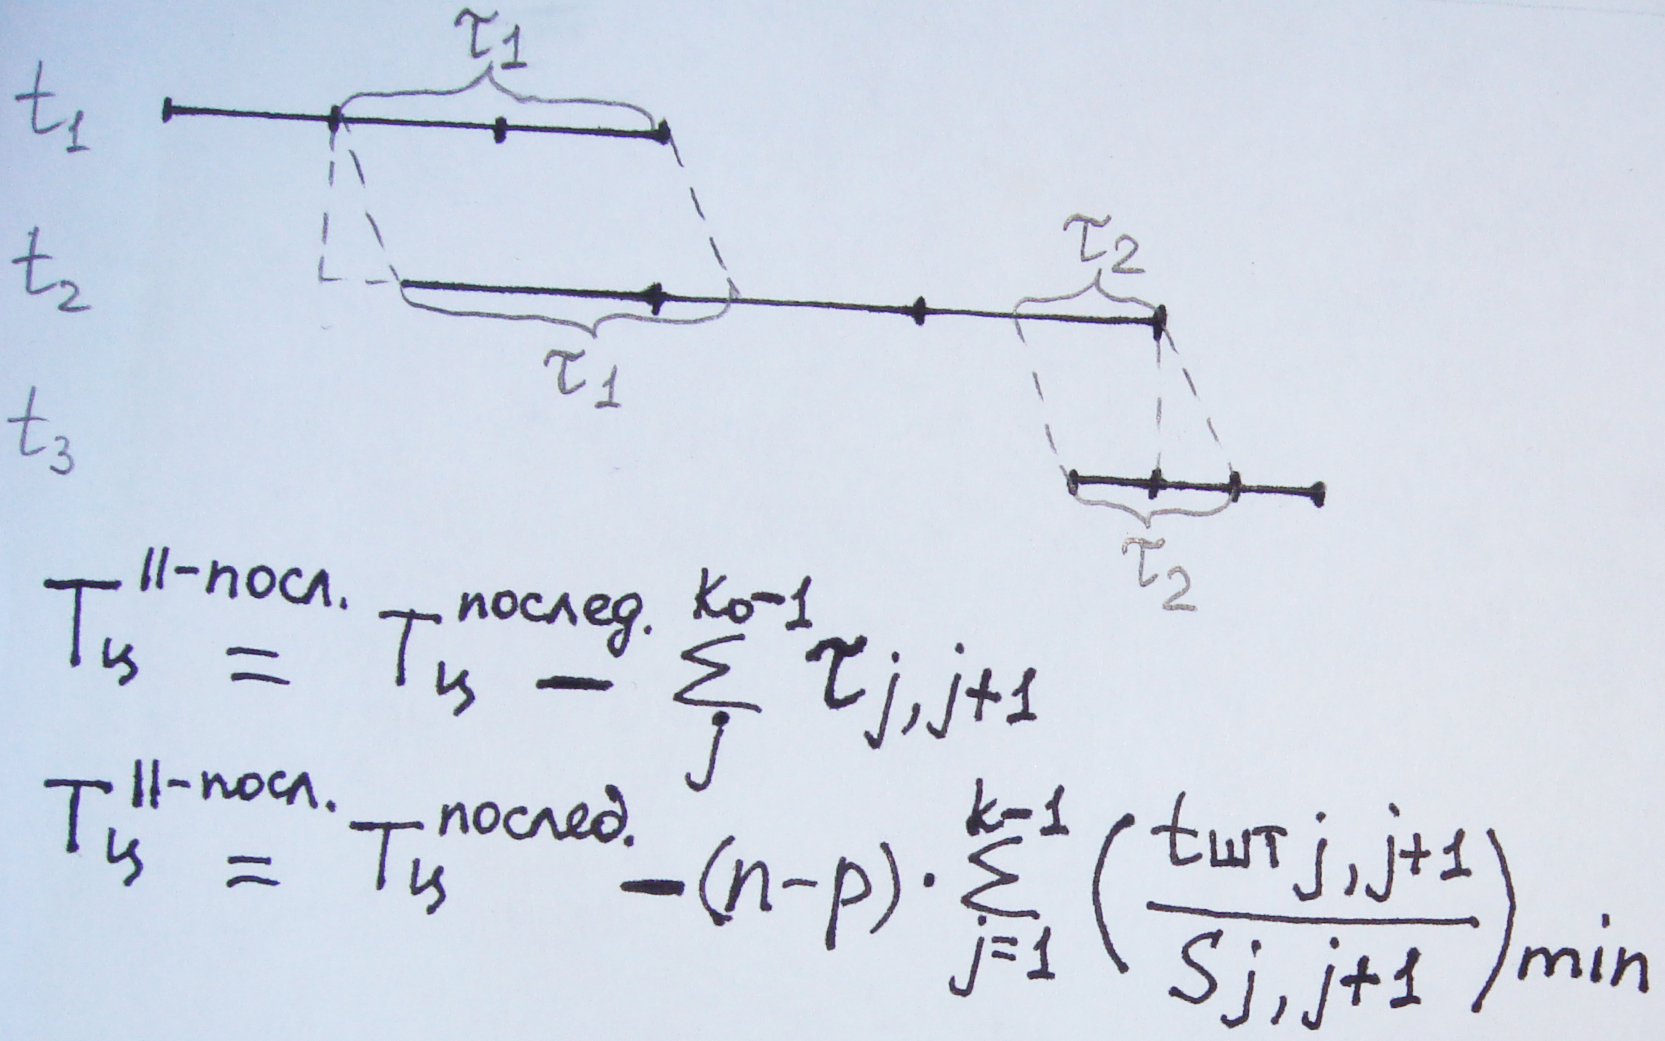 τ1
t1
τ2
t2
τ1
t3
τ2
Tц^||-посл. = Tц^послед. − Σ_j^(k₀-1) τ j, j+1
Tц^||-посл. = Tц^послед. − (n-p) · Σ_(j=1)^(k-1) (tшт j, j+1 / S j, j+1) min